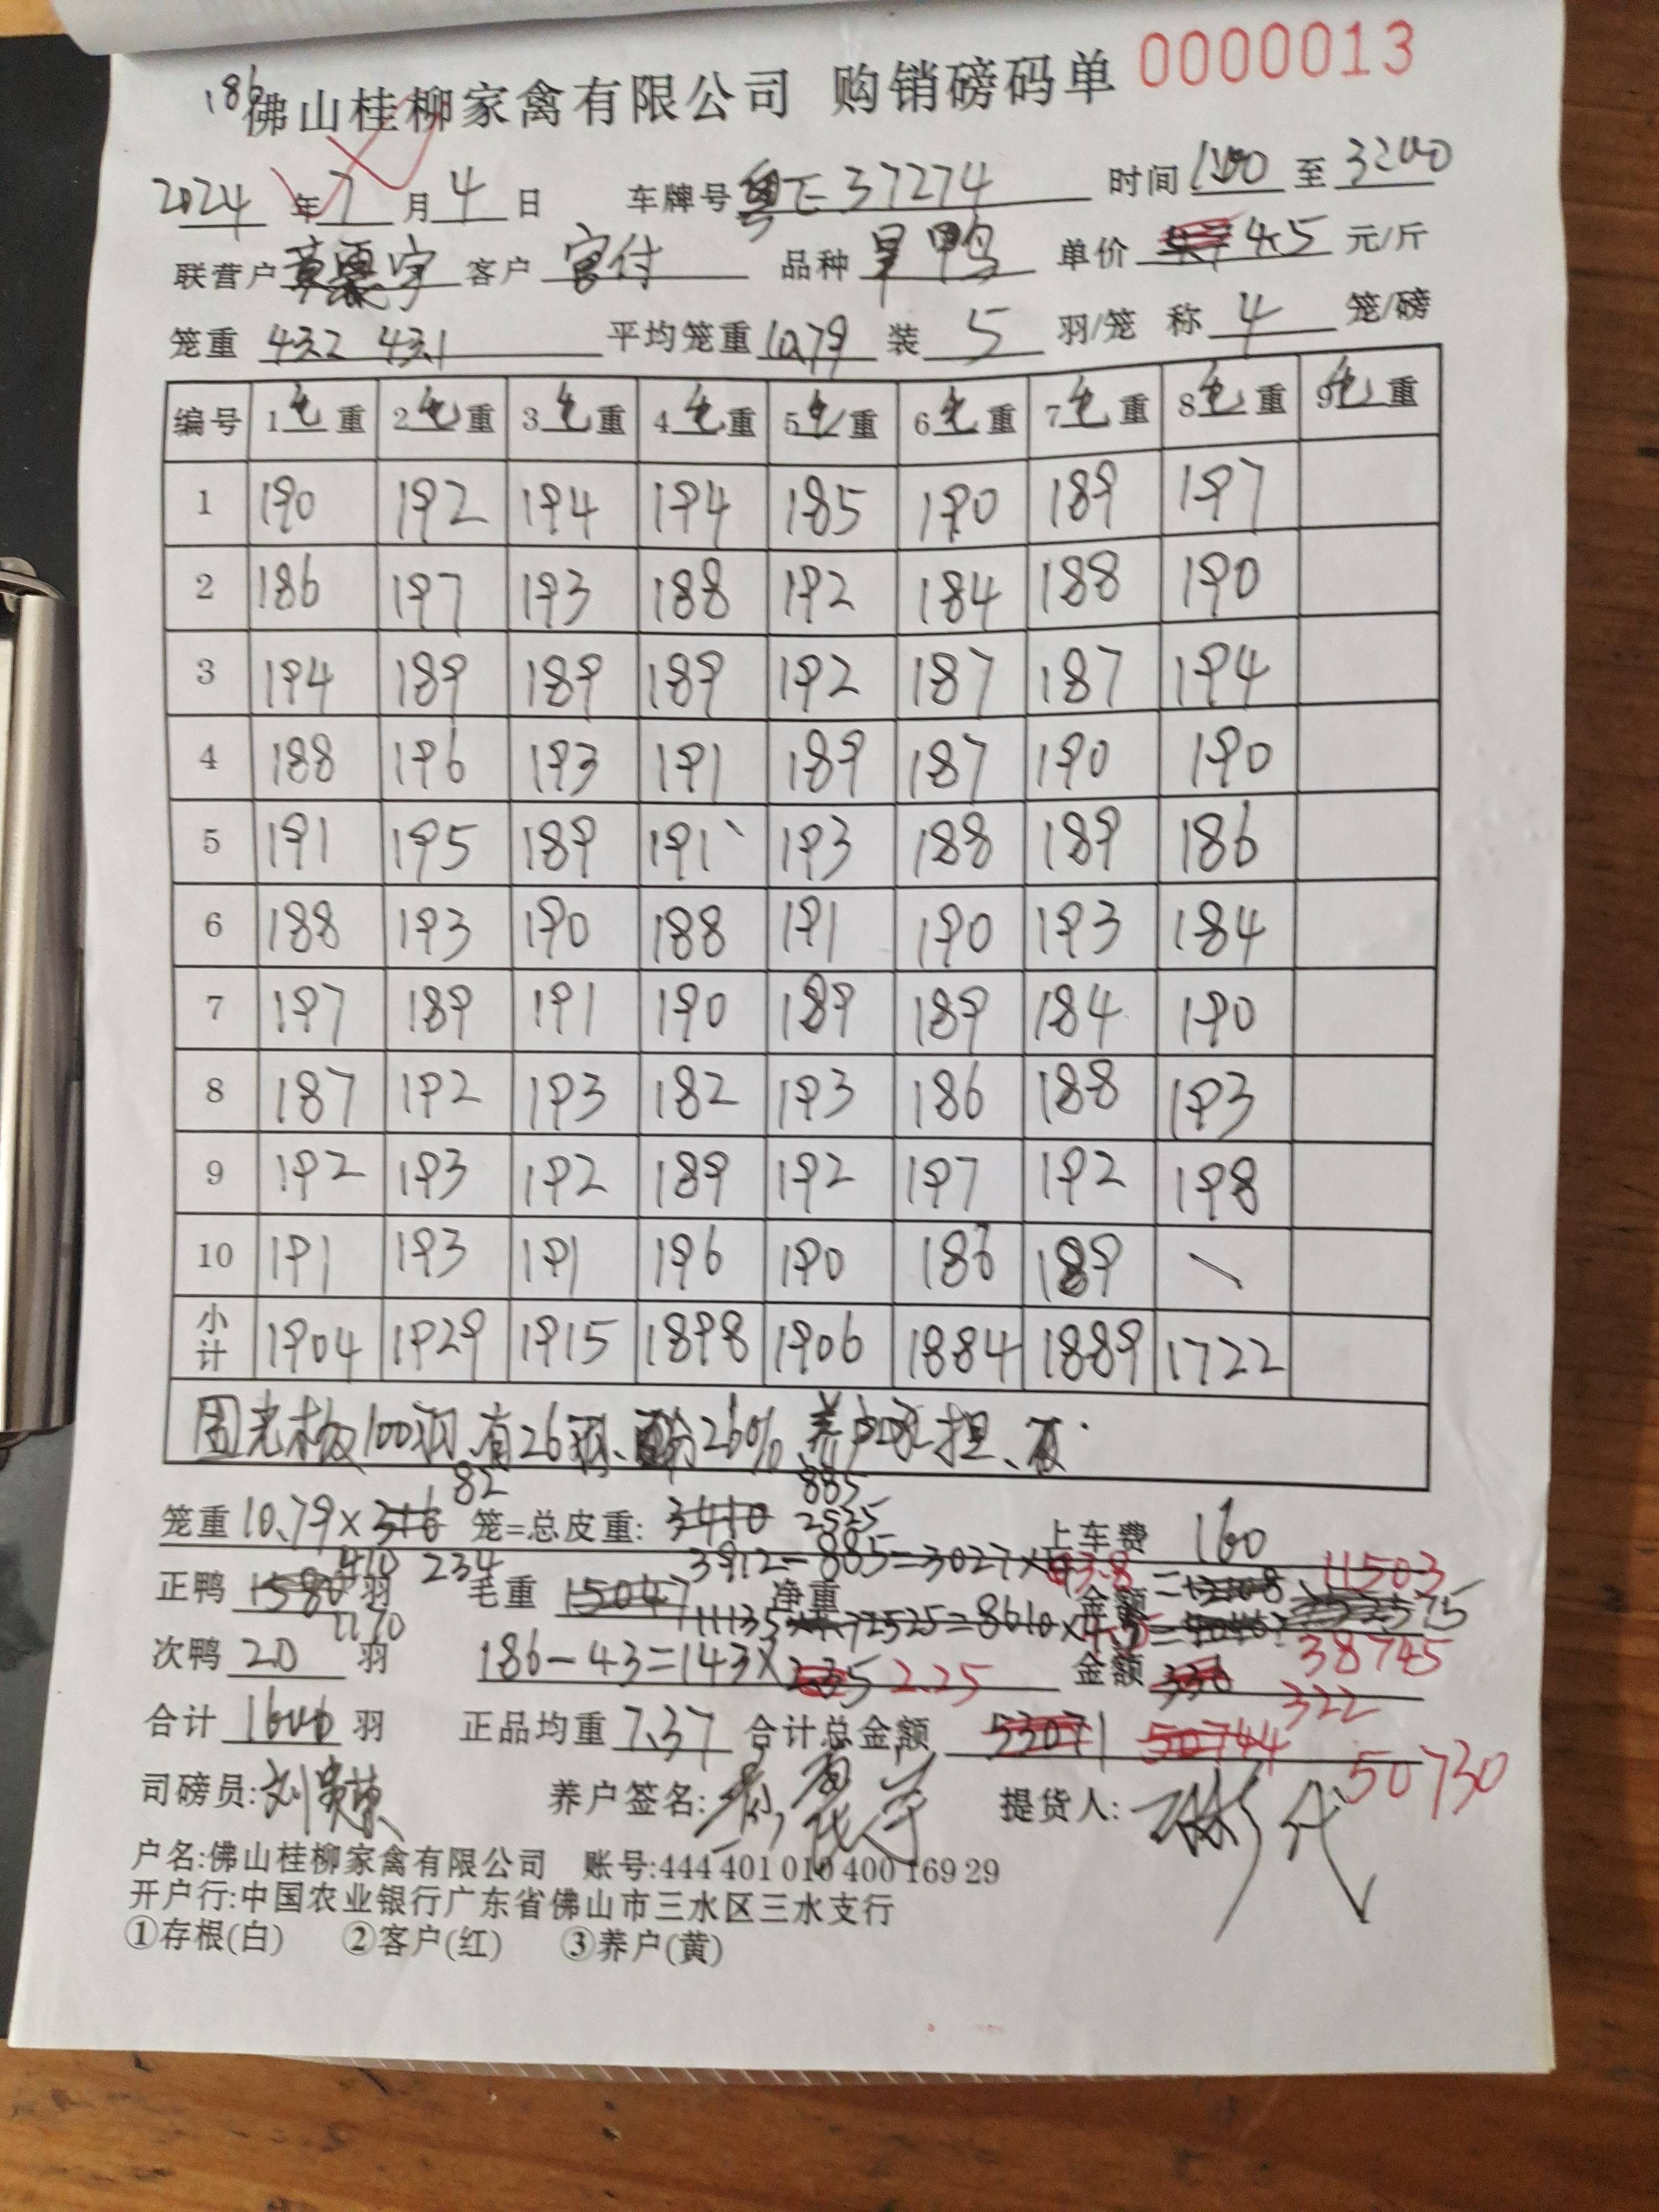 186
佛山桂柳家禽有限公司 购销磅码单 0000013
2024 年 7 月 4 日 车牌号 粤E 37274 时间 至
联营户 客户 品种 鸭 单价 4.5 元/斤
笼重 43.2 43.1 平均笼重 10.79 装 5 羽/笼 称 4 笼/磅
编号 1毛重 2毛重 3毛重 4毛重 5毛重 6毛重 7毛重 8毛重 9毛重
1 190 192 194 194 185 190 189 197
2 186 197 193 188 192 184 188 190
3 194 189 189 189 192 187 187 194
4 188 196 193 191 189 187 190 190
5 191 195 189 191 193 188 189 186
6 188 193 190 188 191 190 193 184
7 197 189 191 190 189 189 184 190
8 187 192 193 182 193 186 188 193
9 192 193 192 189 192 197 192 198
10 191 193 191 196 190 186 189 \
小计 1904 1929 1915 1898 1906 1884 1889 1722
100羽、有26羽、26%、养户承担、
82 885
笼重 10.79 × 316 笼=总皮重: 3410 2525 上车费 160
410 234 3912-885=3027× 3.8 = 11503
正鸭 1580 羽 毛重 15047 净重 金额
1170 11135-2525=8610×4.5= 38745
次鸭 20 羽 186-43=143× 2.25 金额 336 322
合计 1600 羽 正品均重 7.37 合计总金额 53071 50744 50730
司磅员: 养户签名: 提货人:
户名:佛山桂柳家禽有限公司 账号:444 401 010 400 169 29
开户行:中国农业银行广东省佛山市三水区三水支行
①存根(白) ②客户(红) ③养户(黄)